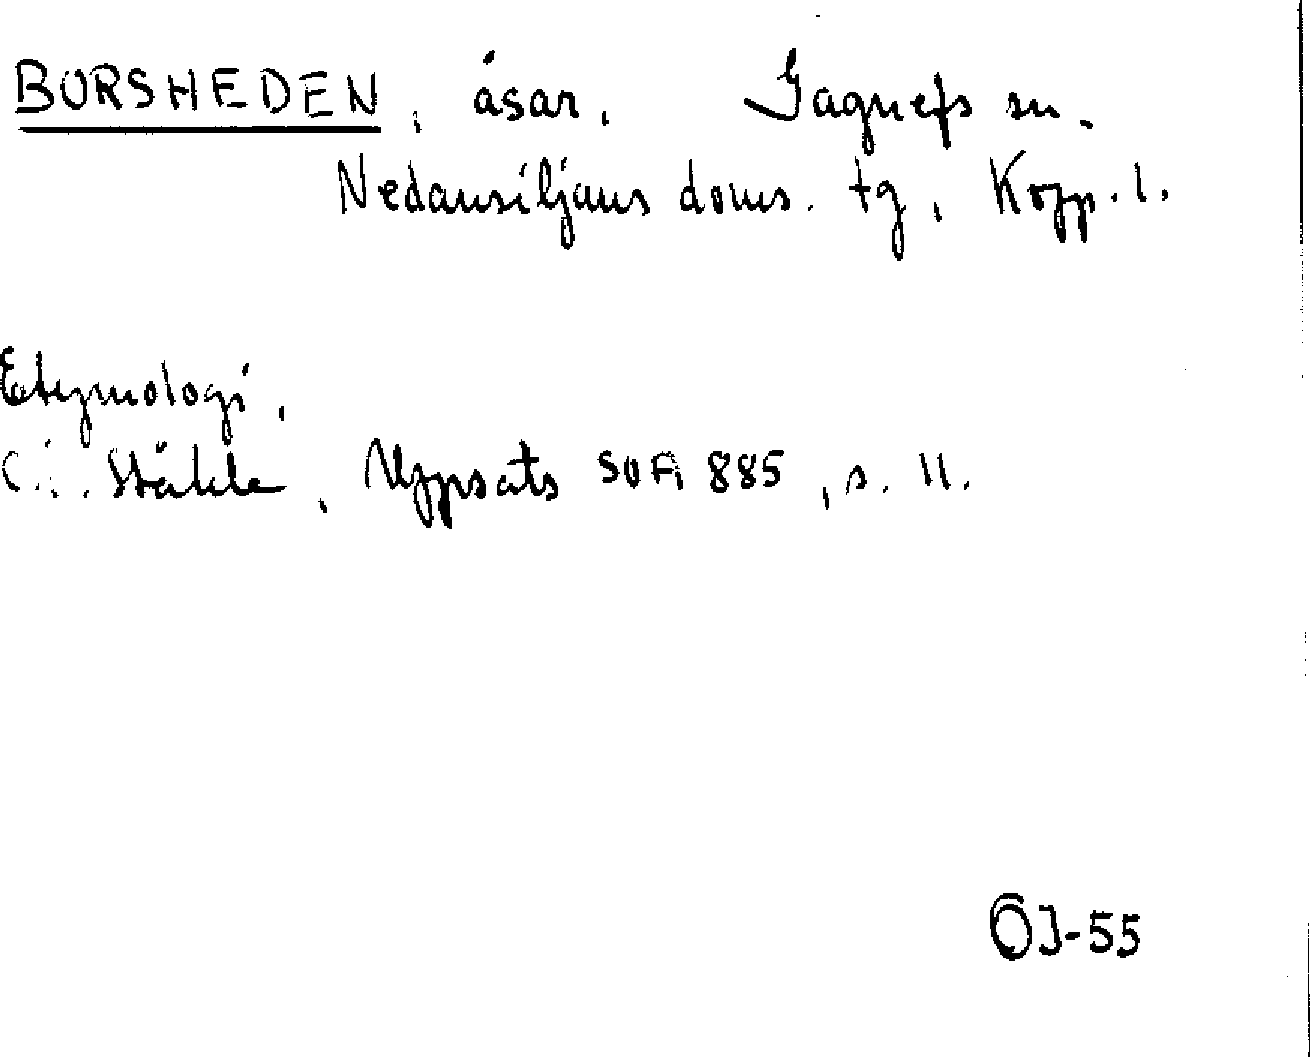 BORSHEDEN, åsar. Gagnefs sn.
Nedansiljans doms. tg, Kopp. l.
Etymologi.
C. I. Ståhle, Uppsats SOA 885, s. 11.
ÖJ-55